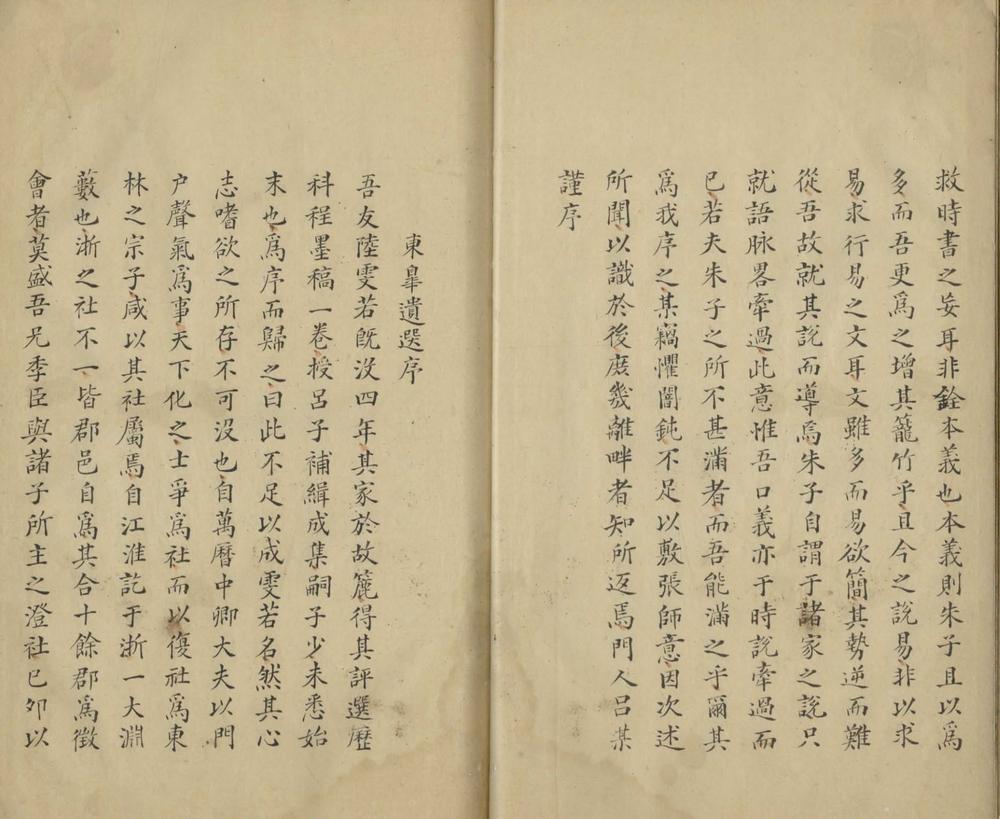 救時書之妄耳非銓本義也本義則朱子且以爲
多而吾更爲之增其籠竹乎且今之説易非以求
易求行易之文耳文雖多而易欲簡其勢逆而難
從吾故就其説而導焉朱子自謂于諸家之説只
就語脉畧牽過此意惟吾口義亦于時説牽過而
已若夫朱子之所不甚滿者而吾能滿之乎爾其
爲我序之某竊懼闇鈍不足以敷張師意因次述
所聞以識於後庻幾離畔者知所返焉門人吕某
謹序
東臯遺選序
吾友陸雯若旣没四年其家於故簏得其評選歷
科程墨稿一卷授吕子補緝成集嗣子少未悉始
末也爲序而歸之曰此不足以成雯若名然其心
志嗜欲之所存不可没也自萬曆中卿大夫以門
户聲氣爲事天下化之士爭爲社而以復社爲東
林之宗子咸以其社屬焉自江淮訖于浙一大淵
藪也浙之社不一皆郡邑自爲其合十餘郡爲徵
會者莫盛吾兄季臣與諸子所主之澄社已夘以